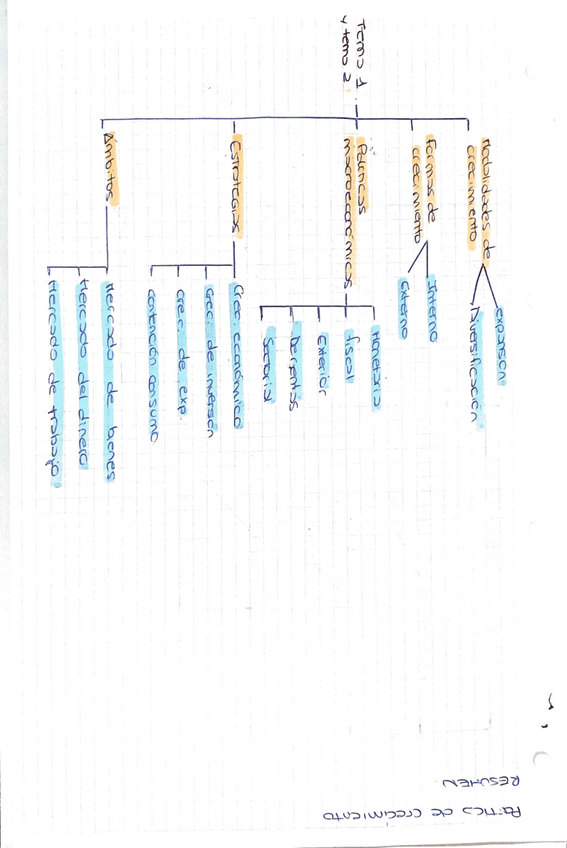 Política de crecimiento
RESUMEN
Tema 1
y tema 2
Modalidades de
crecimiento
expansión
Diversificación
Formas de
crecimiento
Interno
Externo
Políticas
macroeconómicas
Monetaria
fiscal
Exterior
De rentas
Sectorial
Estrategias
Crec. económico
Crec. de inversión
Crec. de exp.
contención consumo
Ámbitos
Mercado de bienes
Mercado del dinero
Mercado de trabajo